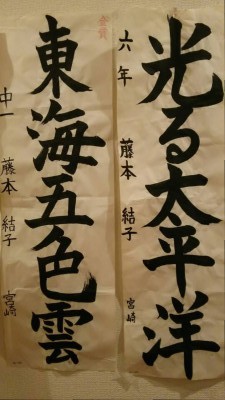 光る太平洋
六年 藤本 結子 宮崎
東海五色雲
中一 藤本 結子 宮崎